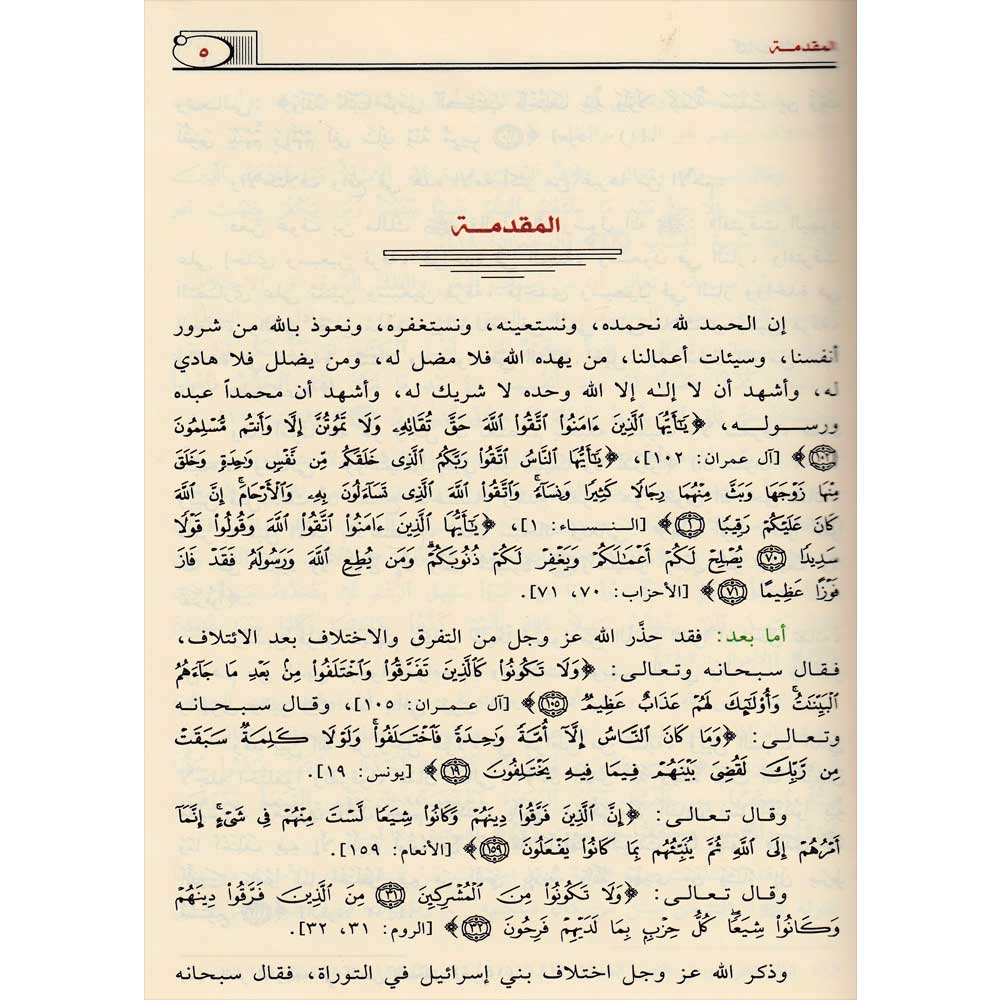 المقدمة
٥
المقدمة
إن الحمد لله نحمده، ونستعينه، ونستغفره، ونعوذ بالله من شرور
أنفسنا، وسيئات أعمالنا، من يهده الله فلا مضل له، ومن يضلل فلا هادي
له، وأشهد أن لا إلٰه إلا الله وحده لا شريك له، وأشهد أن محمداً عبده
ورسوله، ﴿يَٰٓأَيُّهَا ٱلَّذِينَ ءَامَنُوا۟ ٱتَّقُوا۟ ٱللَّهَ حَقَّ تُقَاتِهِۦ وَلَا تَمُوتُنَّ إِلَّا وَأَنتُم مُّسْلِمُونَ
١٠٢﴾ [آل عمران: ١٠٢]، ﴿يَٰٓأَيُّهَا ٱلنَّاسُ ٱتَّقُوا۟ رَبَّكُمُ ٱلَّذِى خَلَقَكُم مِّن نَّفْسٍ وَٰحِدَةٍ وَخَلَقَ
مِنْهَا زَوْجَهَا وَبَثَّ مِنْهُمَا رِجَالًا كَثِيرًا وَنِسَآءً ۚ وَٱتَّقُوا۟ ٱللَّهَ ٱلَّذِى تَسَآءَلُونَ بِهِۦ وَٱلْأَرْحَامَ ۚ إِنَّ ٱللَّهَ
كَانَ عَلَيْكُمْ رَقِيبًا ١﴾ [النساء: ١]، ﴿يَٰٓأَيُّهَا ٱلَّذِينَ ءَامَنُوا۟ ٱتَّقُوا۟ ٱللَّهَ وَقُولُوا۟ قَوْلًا
سَدِيدًا ٧٠ يُصْلِحْ لَكُمْ أَعْمَٰلَكُمْ وَيَغْفِرْ لَكُمْ ذُنُوبَكُمْ ۗ وَمَن يُطِعِ ٱللَّهَ وَرَسُولَهُۥ فَقَدْ فَازَ
فَوْزًا عَظِيمًا ٧١﴾ [الأحزاب: ٧٠، ٧١].
أما بعد: فقد حذَّر الله عز وجل من التفرق والاختلاف بعد الائتلاف،
فقال سبحانه وتعالى: ﴿وَلَا تَكُونُوا۟ كَٱلَّذِينَ تَفَرَّقُوا۟ وَٱخْتَلَفُوا۟ مِنۢ بَعْدِ مَا جَآءَهُمُ
ٱلْبَيِّنَٰتُ ۚ وَأُو۟لَٰٓئِكَ لَهُمْ عَذَابٌ عَظِيمٌ ١٠٥﴾ [آل عمران: ١٠٥]، وقال سبحانه
وتعالى: ﴿وَمَا كَانَ ٱلنَّاسُ إِلَّآ أُمَّةً وَٰحِدَةً فَٱخْتَلَفُوا۟ ۚ وَلَوْلَا كَلِمَةٌ سَبَقَتْ
مِن رَّبِّكَ لَقُضِىَ بَيْنَهُمْ فِيمَا فِيهِ يَخْتَلِفُونَ ١٩﴾ [يونس: ١٩].
وقال تعالى: ﴿إِنَّ ٱلَّذِينَ فَرَّقُوا۟ دِينَهُمْ وَكَانُوا۟ شِيَعًا لَّسْتَ مِنْهُمْ فِى شَىْءٍ ۚ إِنَّمَآ
أَمْرُهُمْ إِلَى ٱللَّهِ ثُمَّ يُنَبِّئُهُم بِمَا كَانُوا۟ يَفْعَلُونَ ١٥٩﴾ [الأنعام: ١٥٩].
وقال تعالى: ﴿وَلَا تَكُونُوا۟ مِنَ ٱلْمُشْرِكِينَ ٣١ مِنَ ٱلَّذِينَ فَرَّقُوا۟ دِينَهُمْ
وَكَانُوا۟ شِيَعًا ۖ كُلُّ حِزْبٍۭ بِمَا لَدَيْهِمْ فَرِحُونَ ٣٢﴾ [الروم: ٣١، ٣٢].
وذكر الله عز وجل اختلاف بني إسرائيل في التوراة، فقال سبحانه